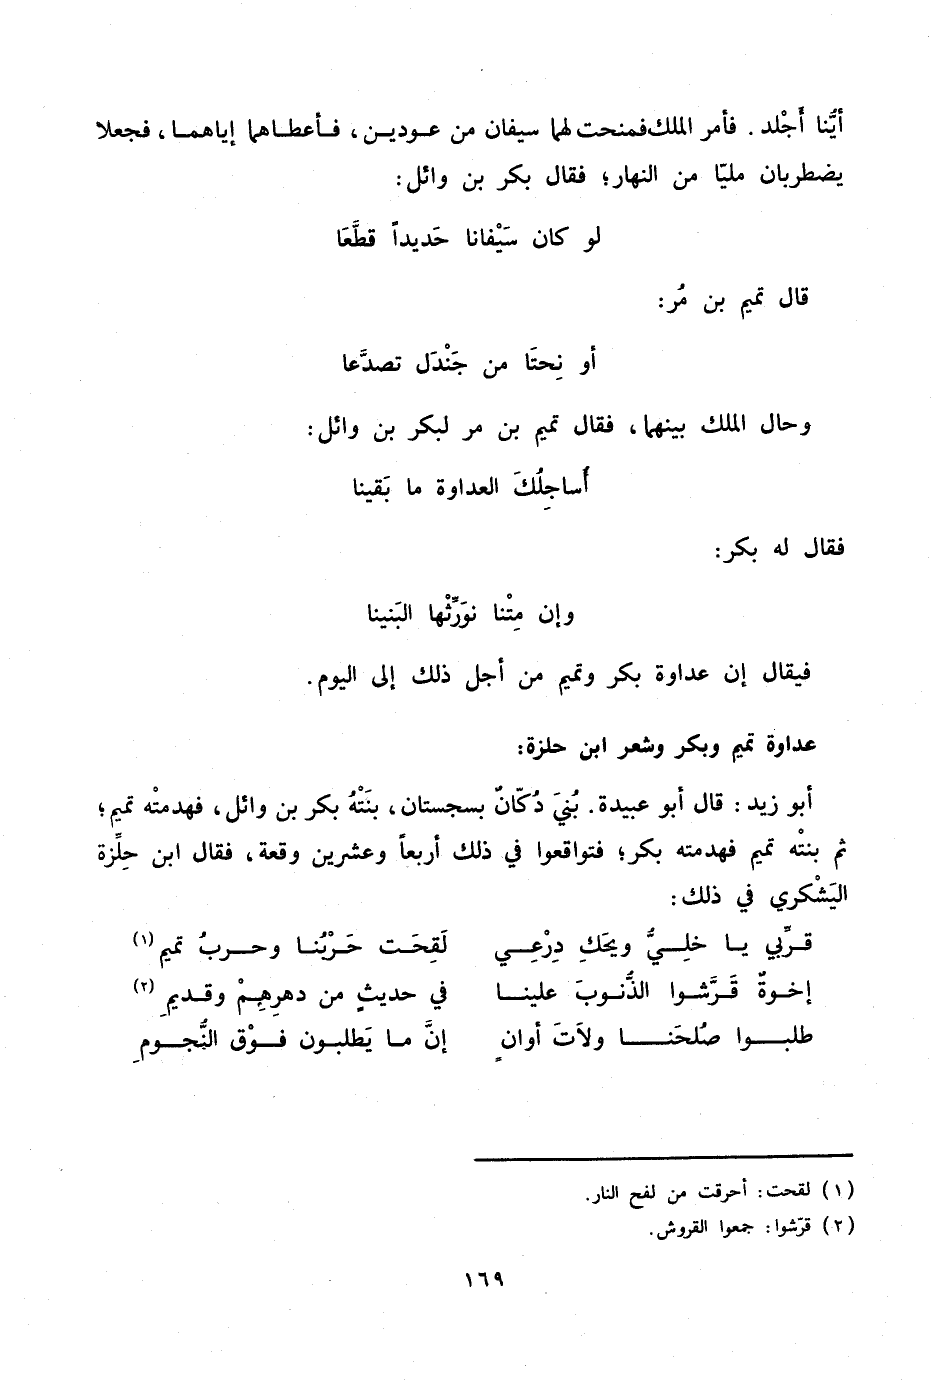 أيُّنا أَجْلد . فأمر الملك فمنحت لهما سيفان من عودين، فأعطاهما إياهما، فجعلا
يضطربان مليّا من النهار؛ فقال بكر بن وائل:
لو كان سَيْفانا حَديداً قطَّعَا
قال تميم بن مُر:
أو نِحتَا من جَنْدَل تصدَّعا
وحال الملك بينهما، فقال تميم بن مر لبكر بن وائل:
أُساجِلُكَ العداوة ما بَقِينا
فقال له بكر:
وإن مِتْنا نوَرِّثْها البَنينا
فيقال إن عداوة بكر وتميم من أجل ذلك إلى اليوم.
عداوة تميم وبكر وشعر ابن حلزة:
أبو زيد : قال أبو عبيدة. بُنيَ دُكّانٌ بسجستان، بنَتْهُ بكر بن وائل، فهدمتْه تميم؛
ثم بنتْه تميم فهدمته بكر؛ فتواقعوا في ذلك أربعاً وعشرين وقعة، فقال ابن حِلِّزة
اليَشْكري في ذلك:
قرِّبي يا خلِيُّ ويحَكِ دِرْعِي لَقِحَت حَرْبُنا وحربُ تميم (١)
إخوةٌ قَرَّشوا الذُّنوبَ علينا في حديثٍ من دهرِهِمْ وقديمِ (٢)
طلبوا صُلحَنا ولاَتَ أوانٍ إنَّ ما يَطلبون فوْق النُّجومِ
(١) لقحت: أحرقت من لفح النار.
(٢) قرّشوا: جمعوا القروش.
١٦٩